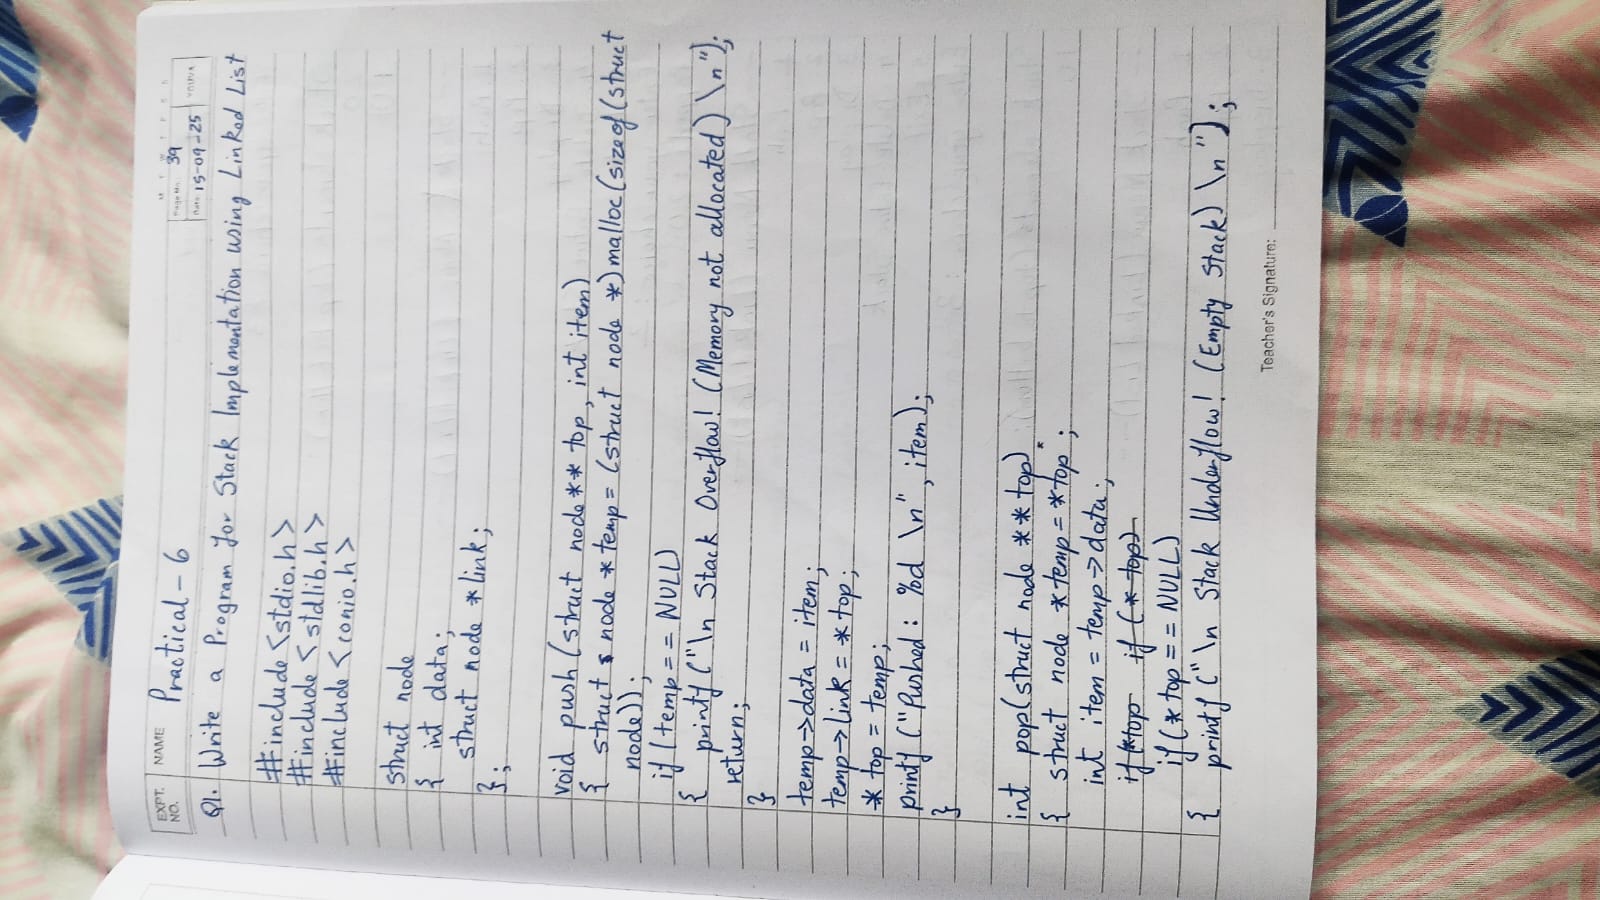 EXPT. NO. NAME Practical - 6
Page No. 39
Date: 15-09-25
Q1. Write a Program for Stack Implementation using Linked List
#include <stdio.h>
#include <stdlib.h>
#include <conio.h>
struct node
{ int data;
struct node *link;
};
void push (struct node** top, int item)
{ struct node *temp = (struct node *) malloc (sizeof (struct
node));
if (temp == NULL)
{ printf ("\n Stack Overflow! (Memory not allocated) \n");
return;
}
temp->data = item;
temp->link = *top;
*top = temp;
printf ("Pushed : %d \n", item);
}
int pop(struct node **top)
{ struct node *temp = *top ;
int item = temp->data;
if (*top if (* top)
if (* top == NULL)
{ printf ("\n Stack Underflow! (Empty Stack) \n");
Teacher's Signature: